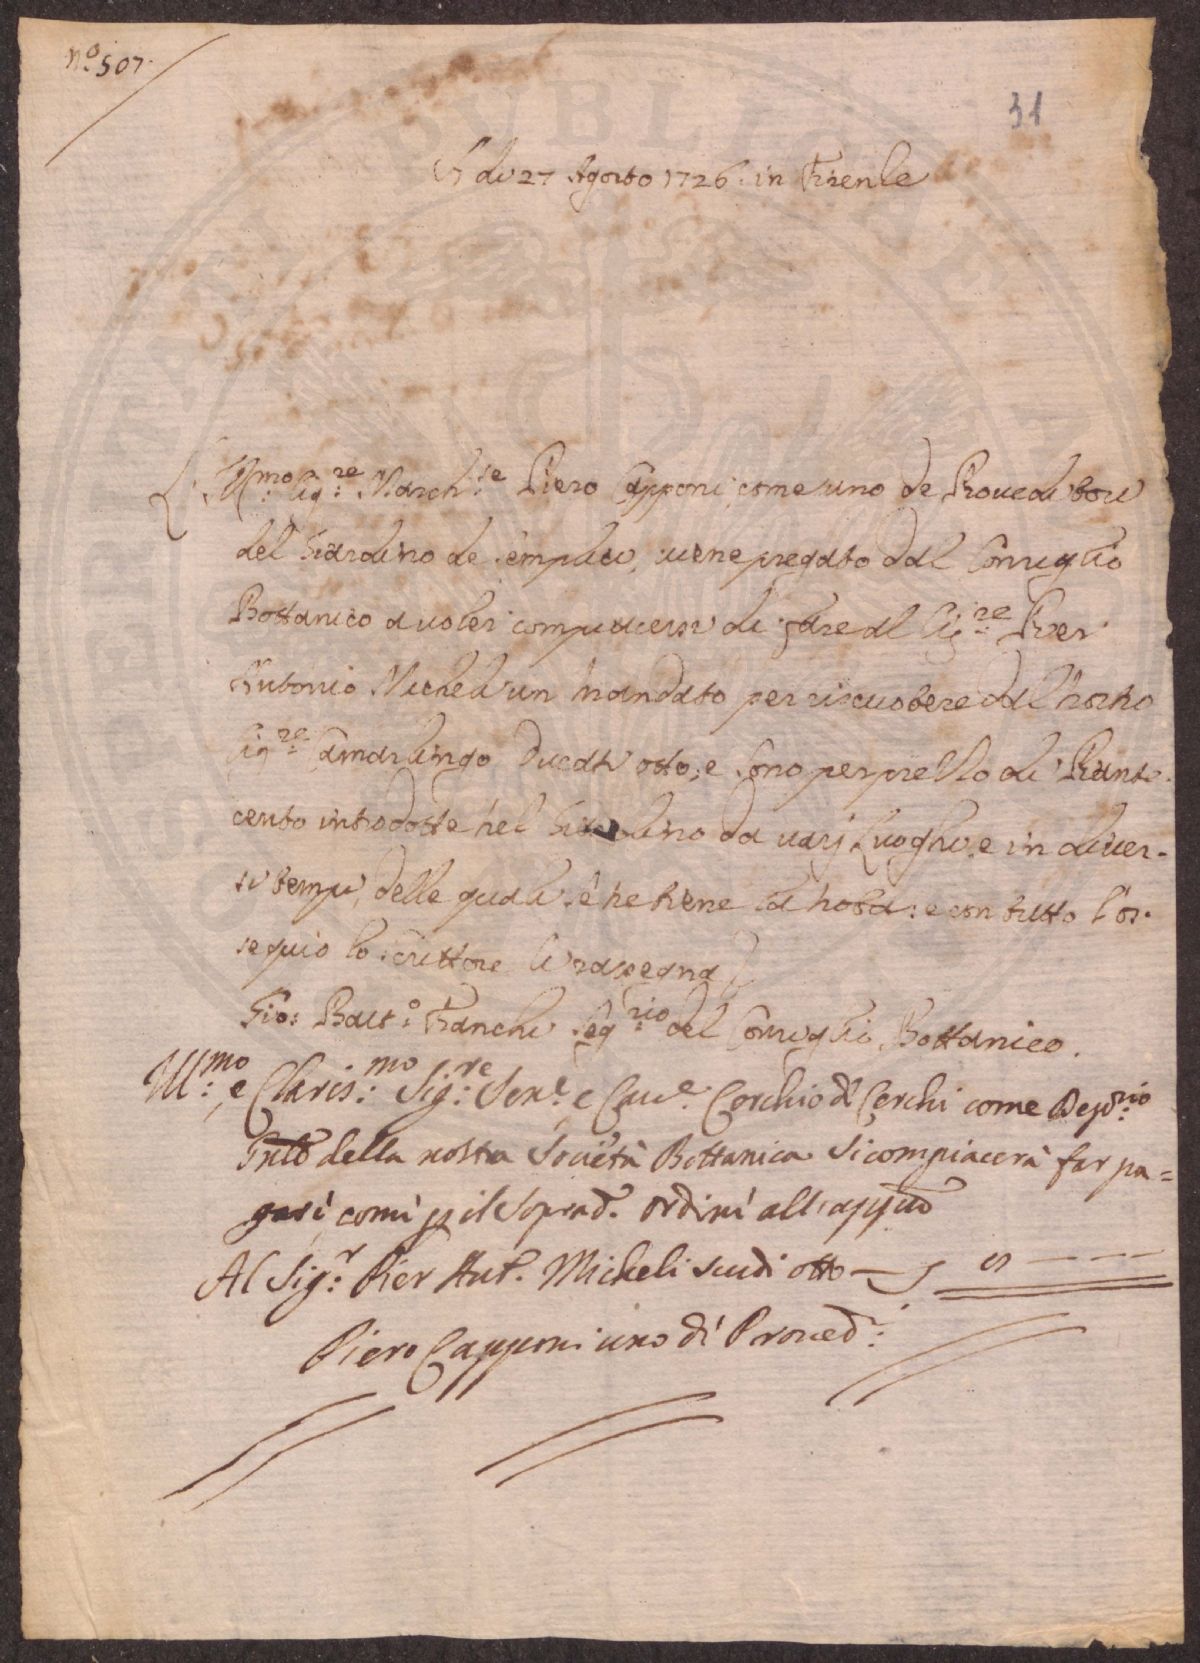 N.º 507.
31
A dì 27 Agosto 1726. in Firenze
L'Ill.mo Sig.re March.se Piero Capponi, come uno de Proveditori
del Giardino de semplici, viene pregato dal Consiglio
Bottanico a voler compiacersi di fare al Sig.re Pier
Antonio Micheli un mandato per riscuotere dal nostro
Sig.re Camarlingo Ducati otto, e sono per prezzo di Piante
cento introdotte nel Giardino da varj Luoghi, e in diver-
si tempi, delle quali se ne tiene la nota: e con tutto l'os-
sequio lo scrittore si rassegna
Gio: Batt.º Franchi Seg.rio del Consiglio Bottanico.
Ill.mo e Claris.mo Sig.re Sen.e e Cav.e Cerchio de Cerchi come Dep.rio
della nostra Società Bottanica si compiacerà far pa=
gare, come p il soprad.
Al Sig.r Pier Ant. Micheli scudi otto — 8 — — —
Piero Capponi uno di Proved.i